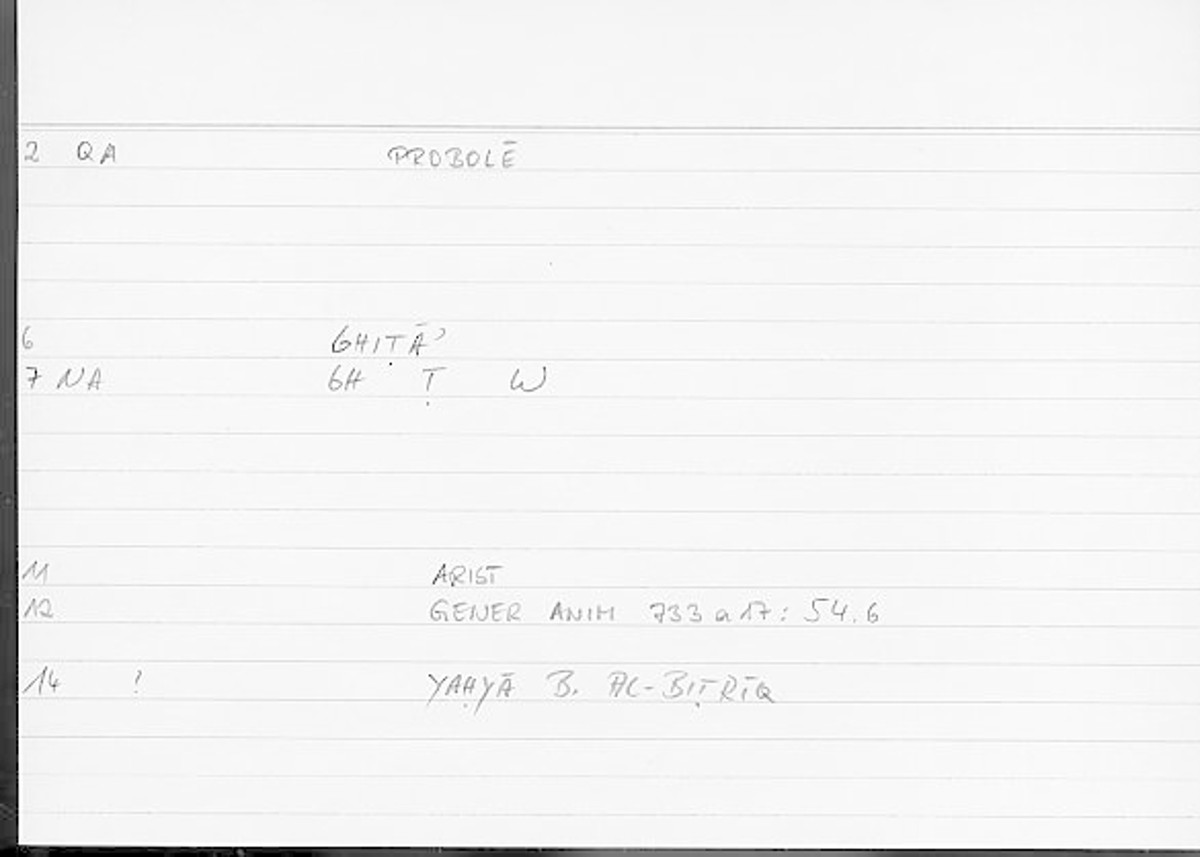 2 QA PROBOLĒ
6 GHIṬĀʾ
7 NA GH Ṭ W
11 ARIST
12 GENER ANIM 733 a 17 : 54.6
14 ? YAḤYĀ B. AL-BIṬRĪQ